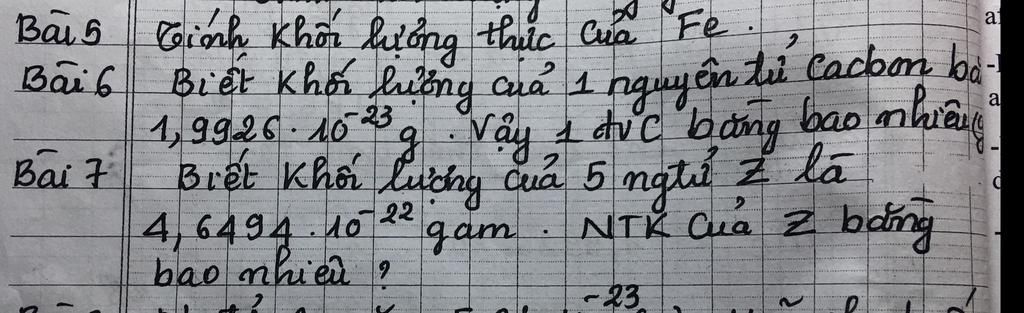 Bài 5 Tính khối lượng thực của Fe.
Bài 6 Biết khối lượng của 1 nguyên tử cacbon bà
1,9926.10⁻²³ g. Vậy 1 đvC bằng bao nhiêu g
Bài 7 Biết khối lượng của 5 ngtử Z là
4,6494.10⁻²² gam. NTK của Z bằng
bao nhiêu ?
-23